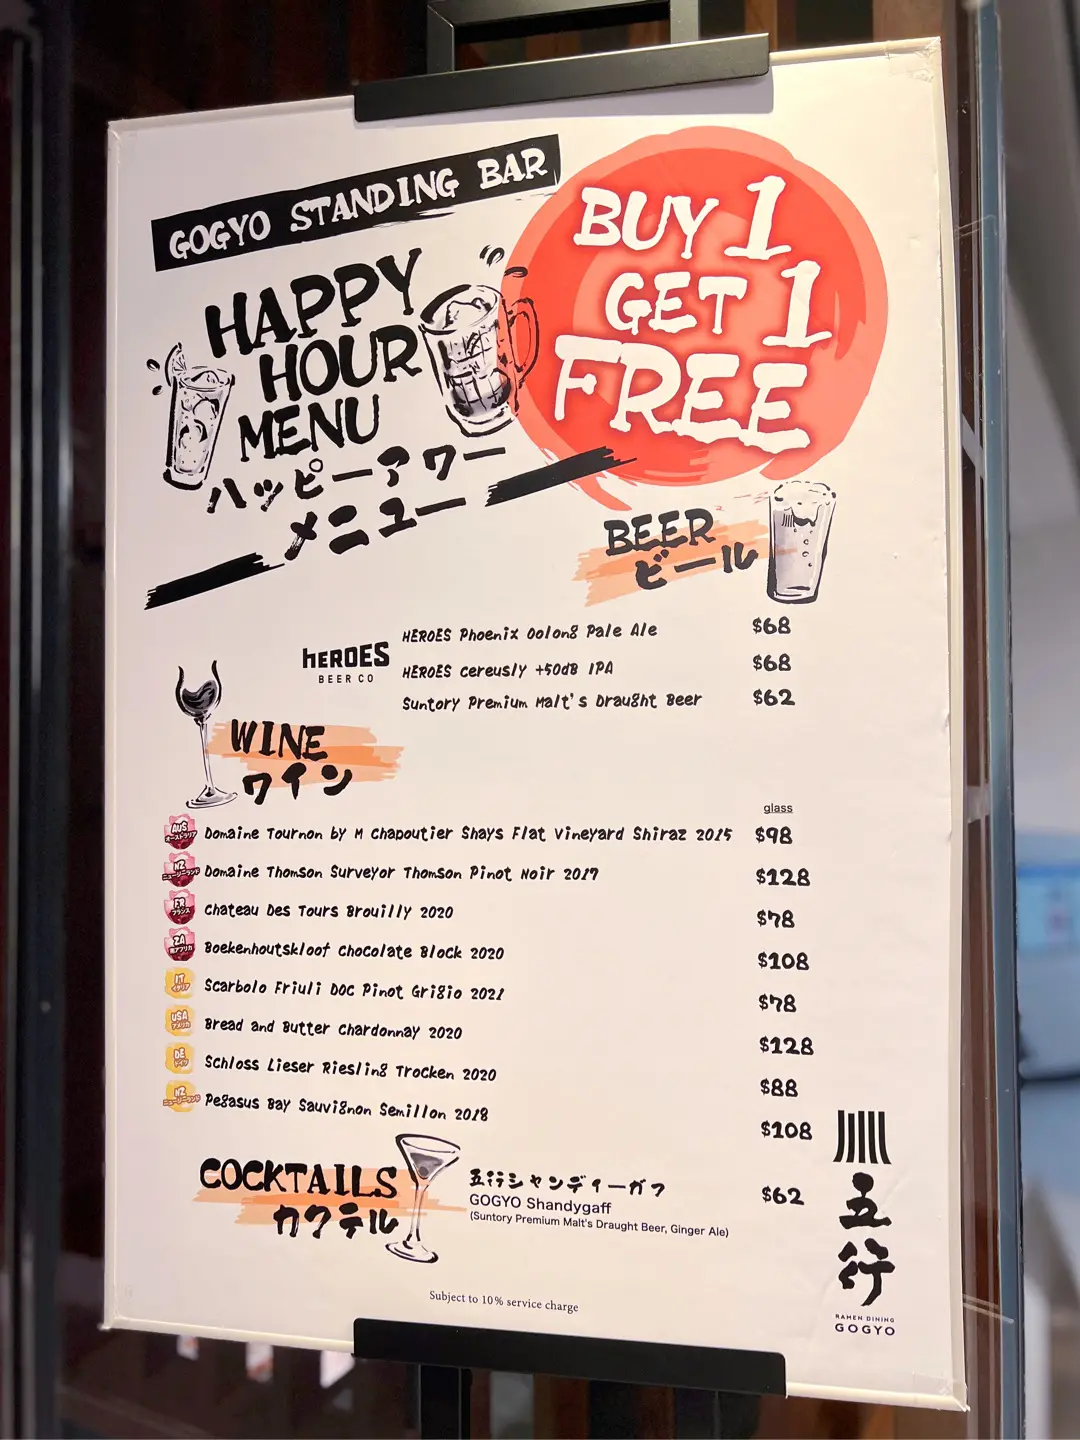 GOGYO STANDING BAR
HAPPY
HOUR
MENU
ハッピーアワー
メニュー
BUY 1
GET 1
FREE
BEER
ビール
hEROES
BEER CO
HEROES Phoenix Oolong Pale Ale $68
HEROES cereusly +50dB IPA $68
Suntory Premium Malt's Draught Beer $62
WINE
ワイン
glass
AUS オーストラリア Domaine Tournon by M Chapoutier Shays Flat Vineyard Shiraz 2015 $98
NZ ニュージーランド Domaine Thomson Surveyor Thomson Pinot Noir 2017 $128
FR フランス Chateau Des Tours Brouilly 2020 $78
ZA 南アフリカ Boekenhoutskloof Chocolate Block 2020 $108
IT イタリア Scarbolo Friuli DOC Pinot Grigio 2021 $78
USA アメリカ Bread and Butter Chardonnay 2020 $128
DE ドイツ Schloss Lieser Riesling Trocken 2020 $88
NZ ニュージーランド Pegasus Bay Sauvignon Semillon 2018 $108
COCKTAILS
カクテル
五行シャンディーガフ
GOGYO Shandygaff $62
(Suntory Premium Malt's Draught Beer, Ginger Ale)
五行
RAMEN DINING
GOGYO
Subject to 10% service charge